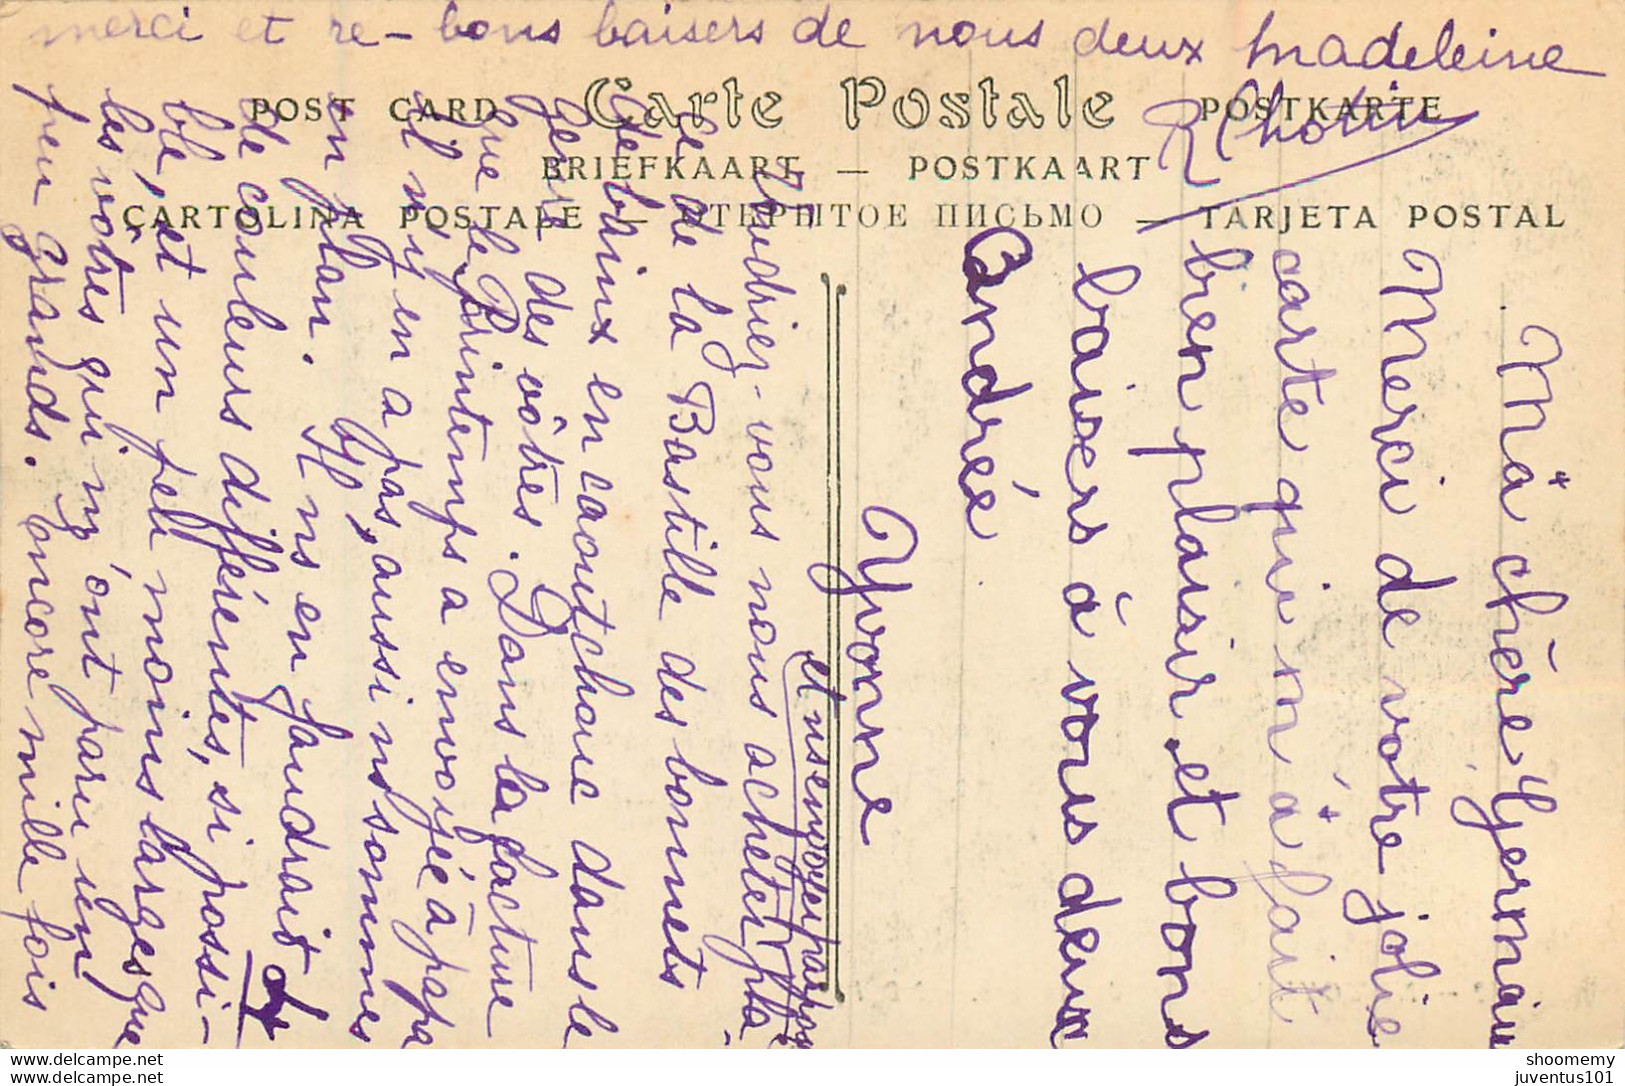 merci et re-bons baisers de nous deux Madeleine
POST CARD Carte Postale POSTKARTE
BRIEFKAART — POSTKAART
CARTOLINA POSTALE — ОТКРЫТОЕ ПИСЬМО — TARJETA POSTAL
Ma chère Germaine
Merci de votre jolie
carte qui m'a fait
bien plaisir, et bons
baisers à vous deux
Andrée
Yvonne
et ns envoyer par
Voudriez-vous nous acheter pla-
ce de la Bastille des bonnets
de bains en caoutchouc dans le
genre des vôtres. Dans la facture
que le Printemps a envoyée à papa
il n'y en a pas, aussi ns sommes
en plan. Il ns en faudrait
de couleurs différentes, si possi-
ble, et un peu moins larges que
les vôtres qui m'ont paru un
peu grands. Encore mille fois
www.delcampe.net
www.delcampe.net
shoomemy
juventus101